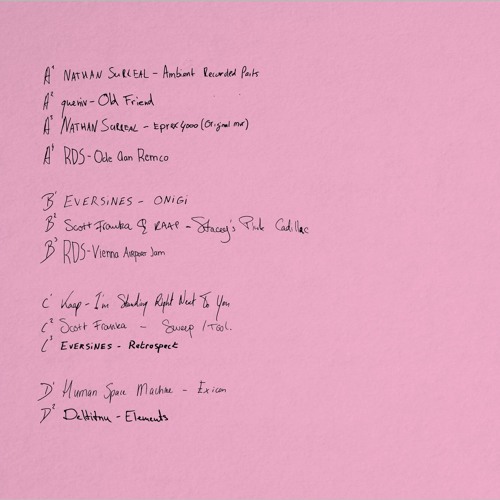 A¹ NATHAN SURREAL - Ambient Recorded Parts
A² queniv - Old Friend
A³ NATHAN SURREAL - Eprex 4000 (Original mix)
A⁴ RDS - Ode Aan Remco
B¹ EVERSINES - ONIGI
B² Scott Franka & RAAP - Stacey's Pink Cadillac
B³ RDS - Vienna Airport Jam
C¹ Kaap - I'm Standing Right Next To You
C² Scott Franka - Sweep / Tool.
C³ EVERSINES - Retrospect
D¹ Human Space Machine - Exicon
D² Deltitnu - Elements